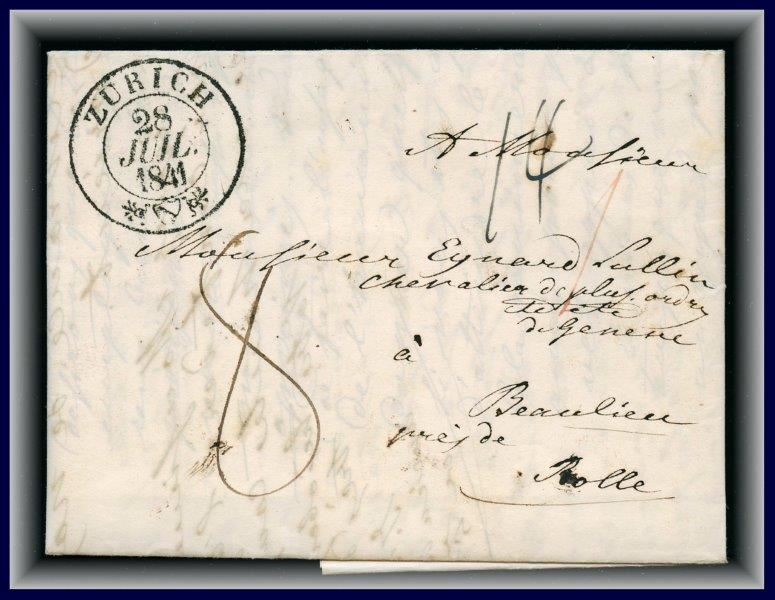 ZÜRICH
28
JUIL.
1841
14
A Monsieur
Monsieur Eynard Lullin
chevalier de plus. ordres
de Geneve
à
8
Beaulieu
près de
Rolle